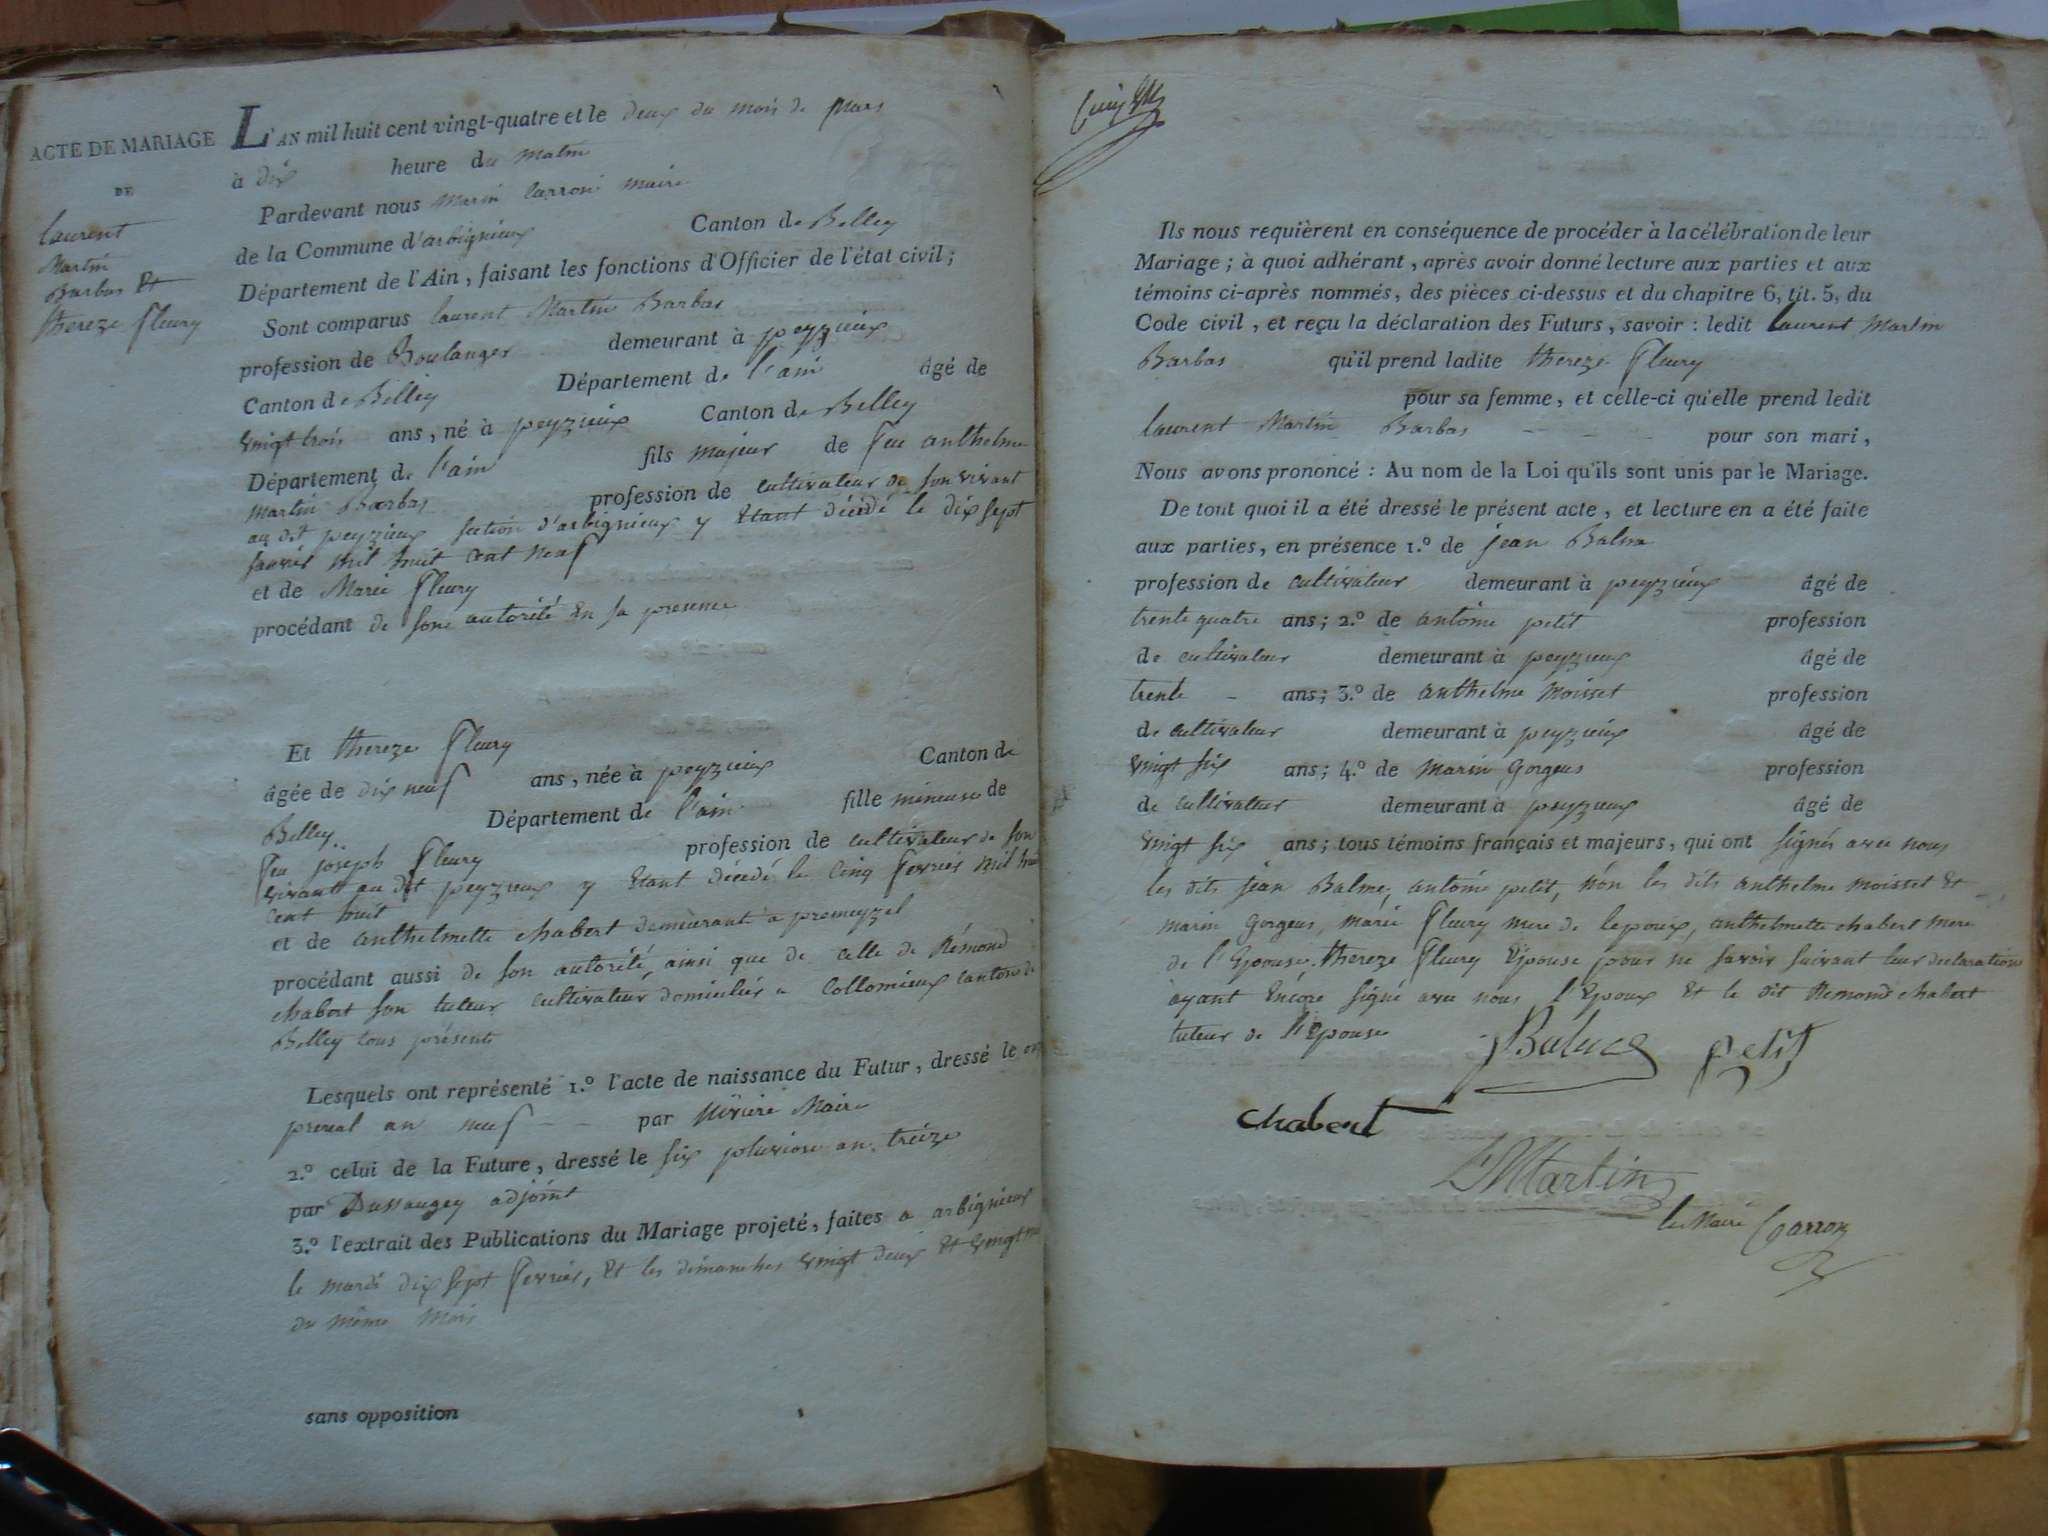 ACTE DE MARIAGE
DE
laurent
Martin
Barbas Et
thereze fleury
L'AN mil huit cent vingt-quatre et le deux du mois de Mars
à dix heure du Matin
Pardevant nous Marin Carron Maire
de la Commune d'arbignieux Canton de Belley
Département de l'Ain, faisant les fonctions d'Officier de l'état civil;
Sont comparus laurent Martin Barbas
profession de Boulanger demeurant à peyzieux
Canton de Belley Département de l'ain âgé de
vingt trois ans, né à peyzieux Canton de Belley
Département de l'ain fils majeur de feu anthelme
Martin Barbas profession de cultivateur de son vivant
au dit peyzieux section d'arbignieux y Etant décédé le dix sept
janvier mil huit cent neuf
et de Marie fleury
procédant de son autorité En sa presence
Et thereze fleury
âgée de dix neuf ans, née à peyzieux Canton de
Belley Département de l'ain fille mineure de
feu joseph fleury profession de cultivateur de son
vivant au dit peyzieux y Etant décédé le cinq fevrier mil huit
cent huit
et de anthelmette chabert demeurant a premeyzel
procédant aussi de son autorité, ainsi que de celle de Rémond
chabert son tuteur cultivateur domicilié a Collomieux canton de
Belley tous présents
Lesquels ont représenté 1.º l'acte de naissance du Futur, dressé le
prereal an neuf -- par Maire
2.º celui de la Future, dressé le six pluviose an treize
par Dussaugey adjoint
3.º l'extrait des Publications du Mariage projeté, faites a arbignieux
le mardi dix sept fevrier, Et les dimanches vingt deux Et vingt
du même Mois
sans opposition
Ils nous requièrent en conséquence de procéder à la célébration de leur
Mariage; à quoi adhérant, après avoir donné lecture aux parties et aux
témoins ci-après nommés, des pièces ci-dessus et du chapitre 6, tit. 5, du
Code civil, et reçu la déclaration des Futurs, savoir: ledit laurent Martin
Barbas qu'il prend ladite thereze fleury
pour sa femme, et celle-ci qu'elle prend ledit
laurent Martin Barbas pour son mari,
Nous avons prononcé: Au nom de la Loi qu'ils sont unis par le Mariage.
De tout quoi il a été dressé le présent acte, et lecture en a été faite
aux parties, en présence 1.º de jean Balme
profession de cultivateur demeurant à peyzieux âgé de
trente quatre ans; 2.º de antoine petit profession
de cultivateur demeurant à peyzieux âgé de
trente - ans; 3.º de anthelme Moisset profession
de cultivateur demeurant à peyzieux âgé de
vingt six ans; 4.º de Marin Gorgeus profession
de cultivateur demeurant à peyzieux âgé de
vingt six ans; tous témoins français et majeurs, qui ont signés avec nous
les dits jean Balme, antoine petit, non les dits anthelme moisset Et
marin Gorgeus, marie fleury mere de lepoux, anthelmette chabert mere
de l'Epouse, thereze fleury Epouse pour ne savoir suivant leur declaration
ayant Encore signé avec nous l'Epoux Et le dit Remond chabert
tuteur de l'Epouse
JBalme petit
chabert
LMartin
le Maire Carron